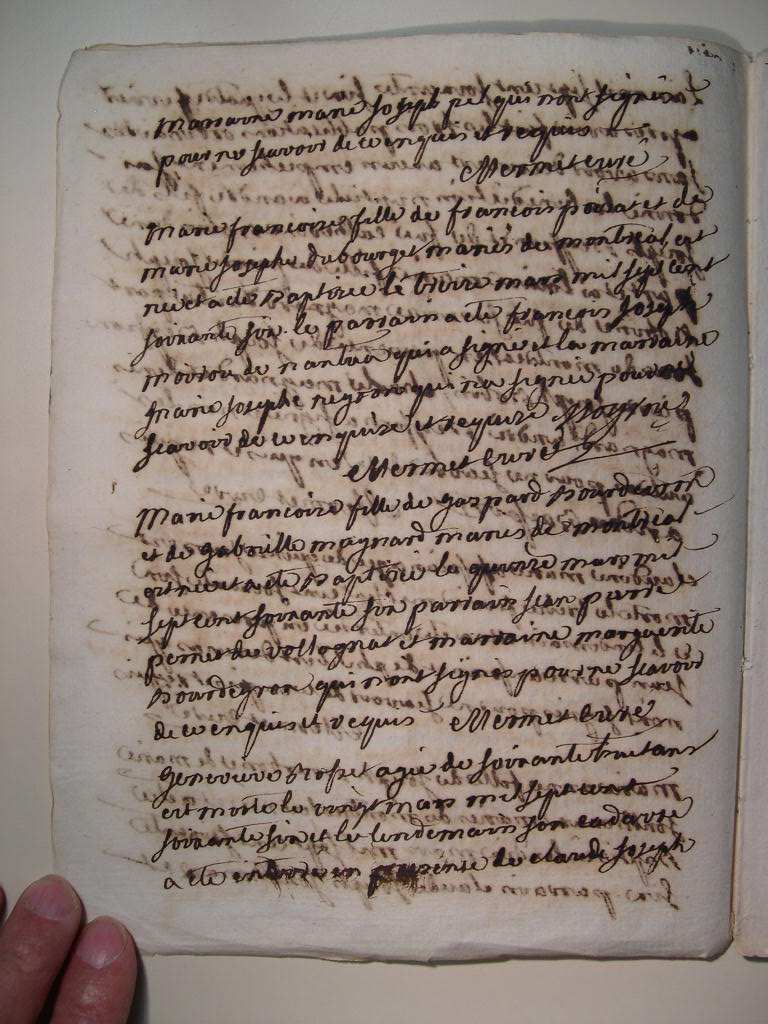 marraine marie Joseph pet qui n'ont signés
pour ne scavoir de ce enquis et requis
Mermet curé
Marie francoise fille de francois et de
marie Josephe dubourget mariés de montreal est
née et a ete Baptisée le treize mars mil sept cent
soixante six le parrain a ete francois Joseph
de nantua qui a signé et la marraine
marie Josephe negron qui n'a signée pour ne
scavoir de ce enquise et requise
Mermet curé
Marie francoise fille de gaspard
et de gabrielle magnard maries de montreal
est née et a ete Baptisée le quinze mars mil
sept cent soixante six parrain Jean pierre
pernet de vollognat et marraine marguerite
Bourdegron qui n'ont signes pour ne scavoir
de ce enquis et requis Mermet curé
Genevieve Rosset agée de soixante huit ans
est morte le vingt mars mil sept cent
soixante six et le lendemain son cadavre
a ete enterré en presence de claude Joseph